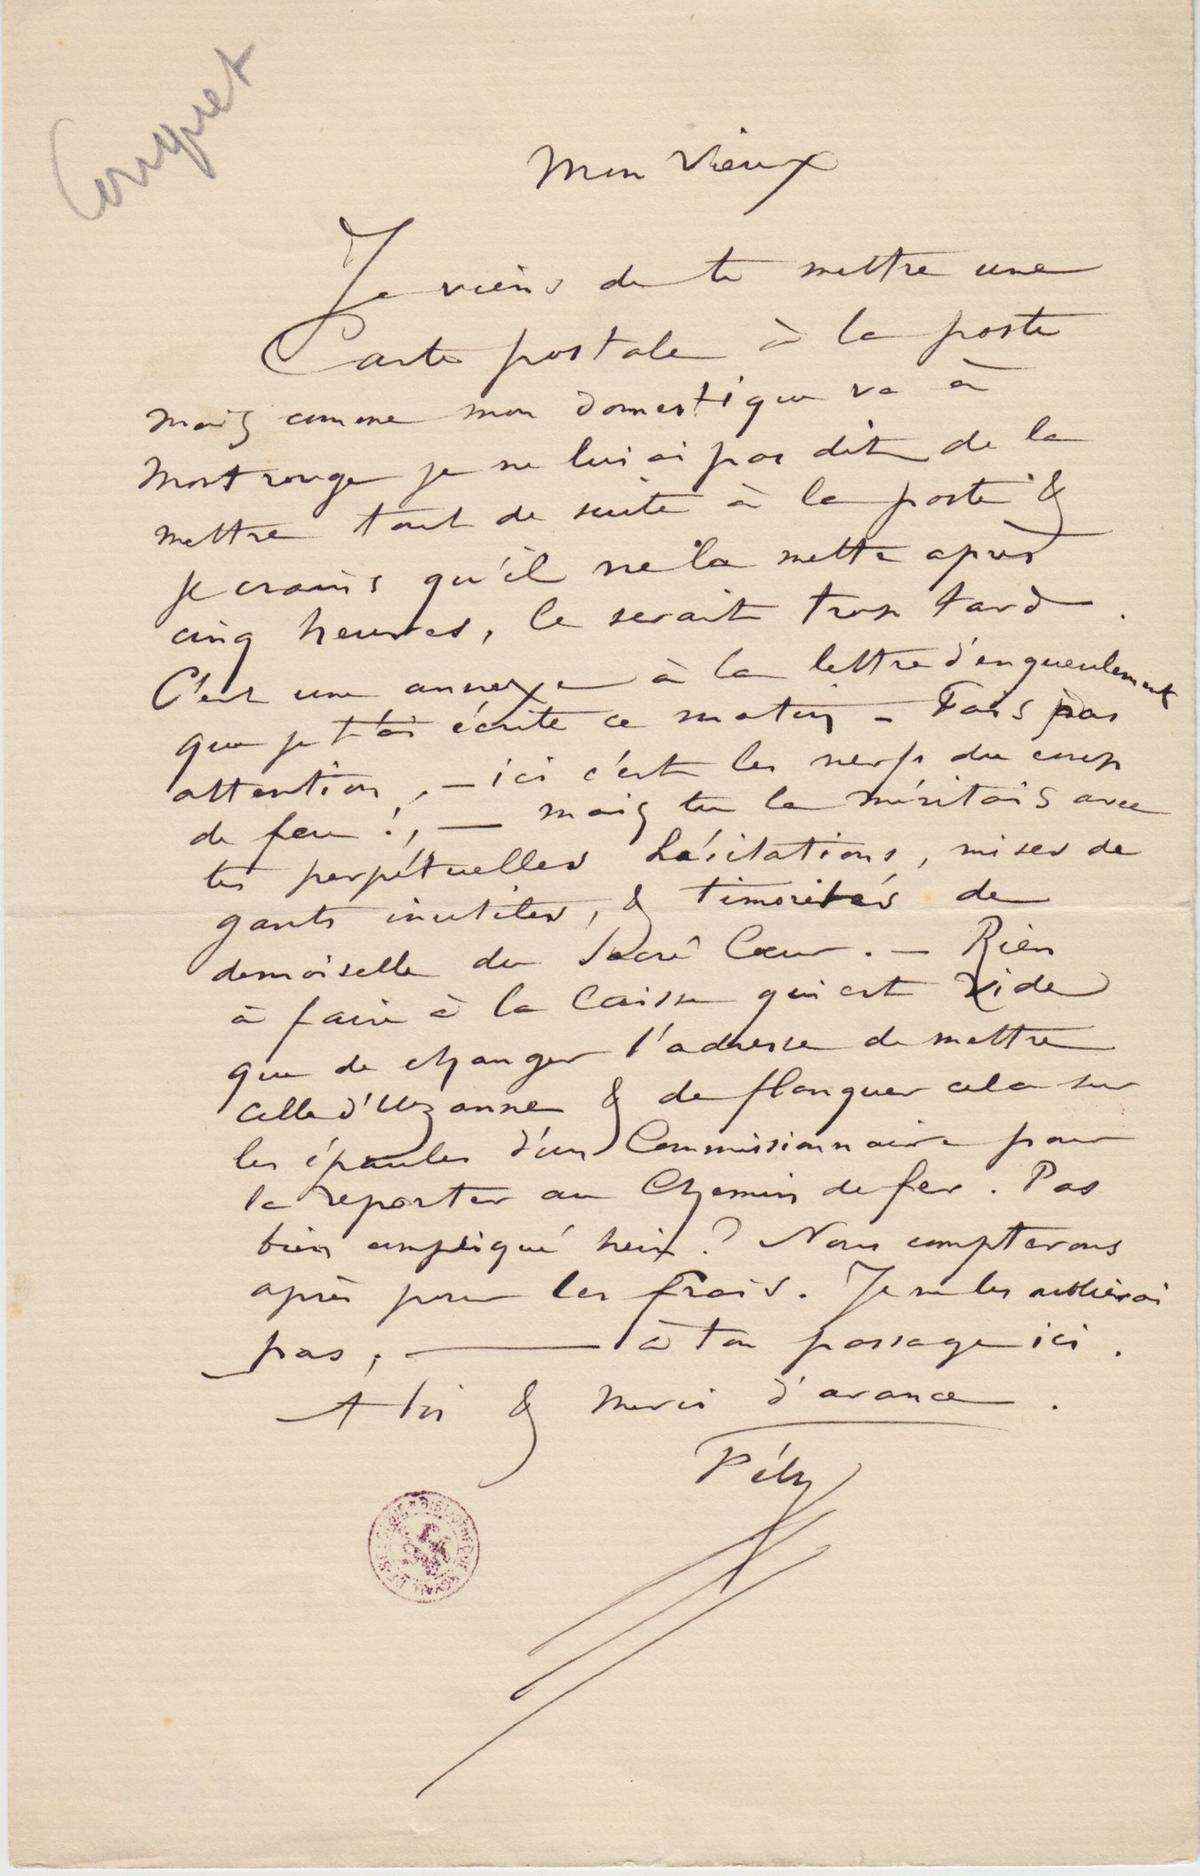 Conquet
Mon Vieux
Je viens de te mettre une
Carte postale à la poste
mais comme mon domestique va à
Montrouge je ne lui ai pas dit de la
mettre tout de suite à la poste &
je crains qu'il ne la mette après
cinq heures, ce serait trop tard.
C'est une annexe à la lettre d'engueulement
que je t'ai écrite ce matin – Fais pas
attention, – ici c'est les nerfs du coup
de feu !, — mais tu la méritais avec
tes perpétuelles hésitations, mises de
gants inutiles, & timorités de
demoiselle du Sacré Cœur. – Rien
à faire à la Caisse qui est vide
que de changer l'adresse de mettre
celle d'Uzanne & de flanquer cela sur
les épaules d'un Commissionnaire pour
le reporter au Chemin de fer. Pas
bien compliqué hein ? Nous compterons
après pour les frais. Je ne les oublierai
pas, — à ton passage ici.
A toi & merci d'avance.
Fély